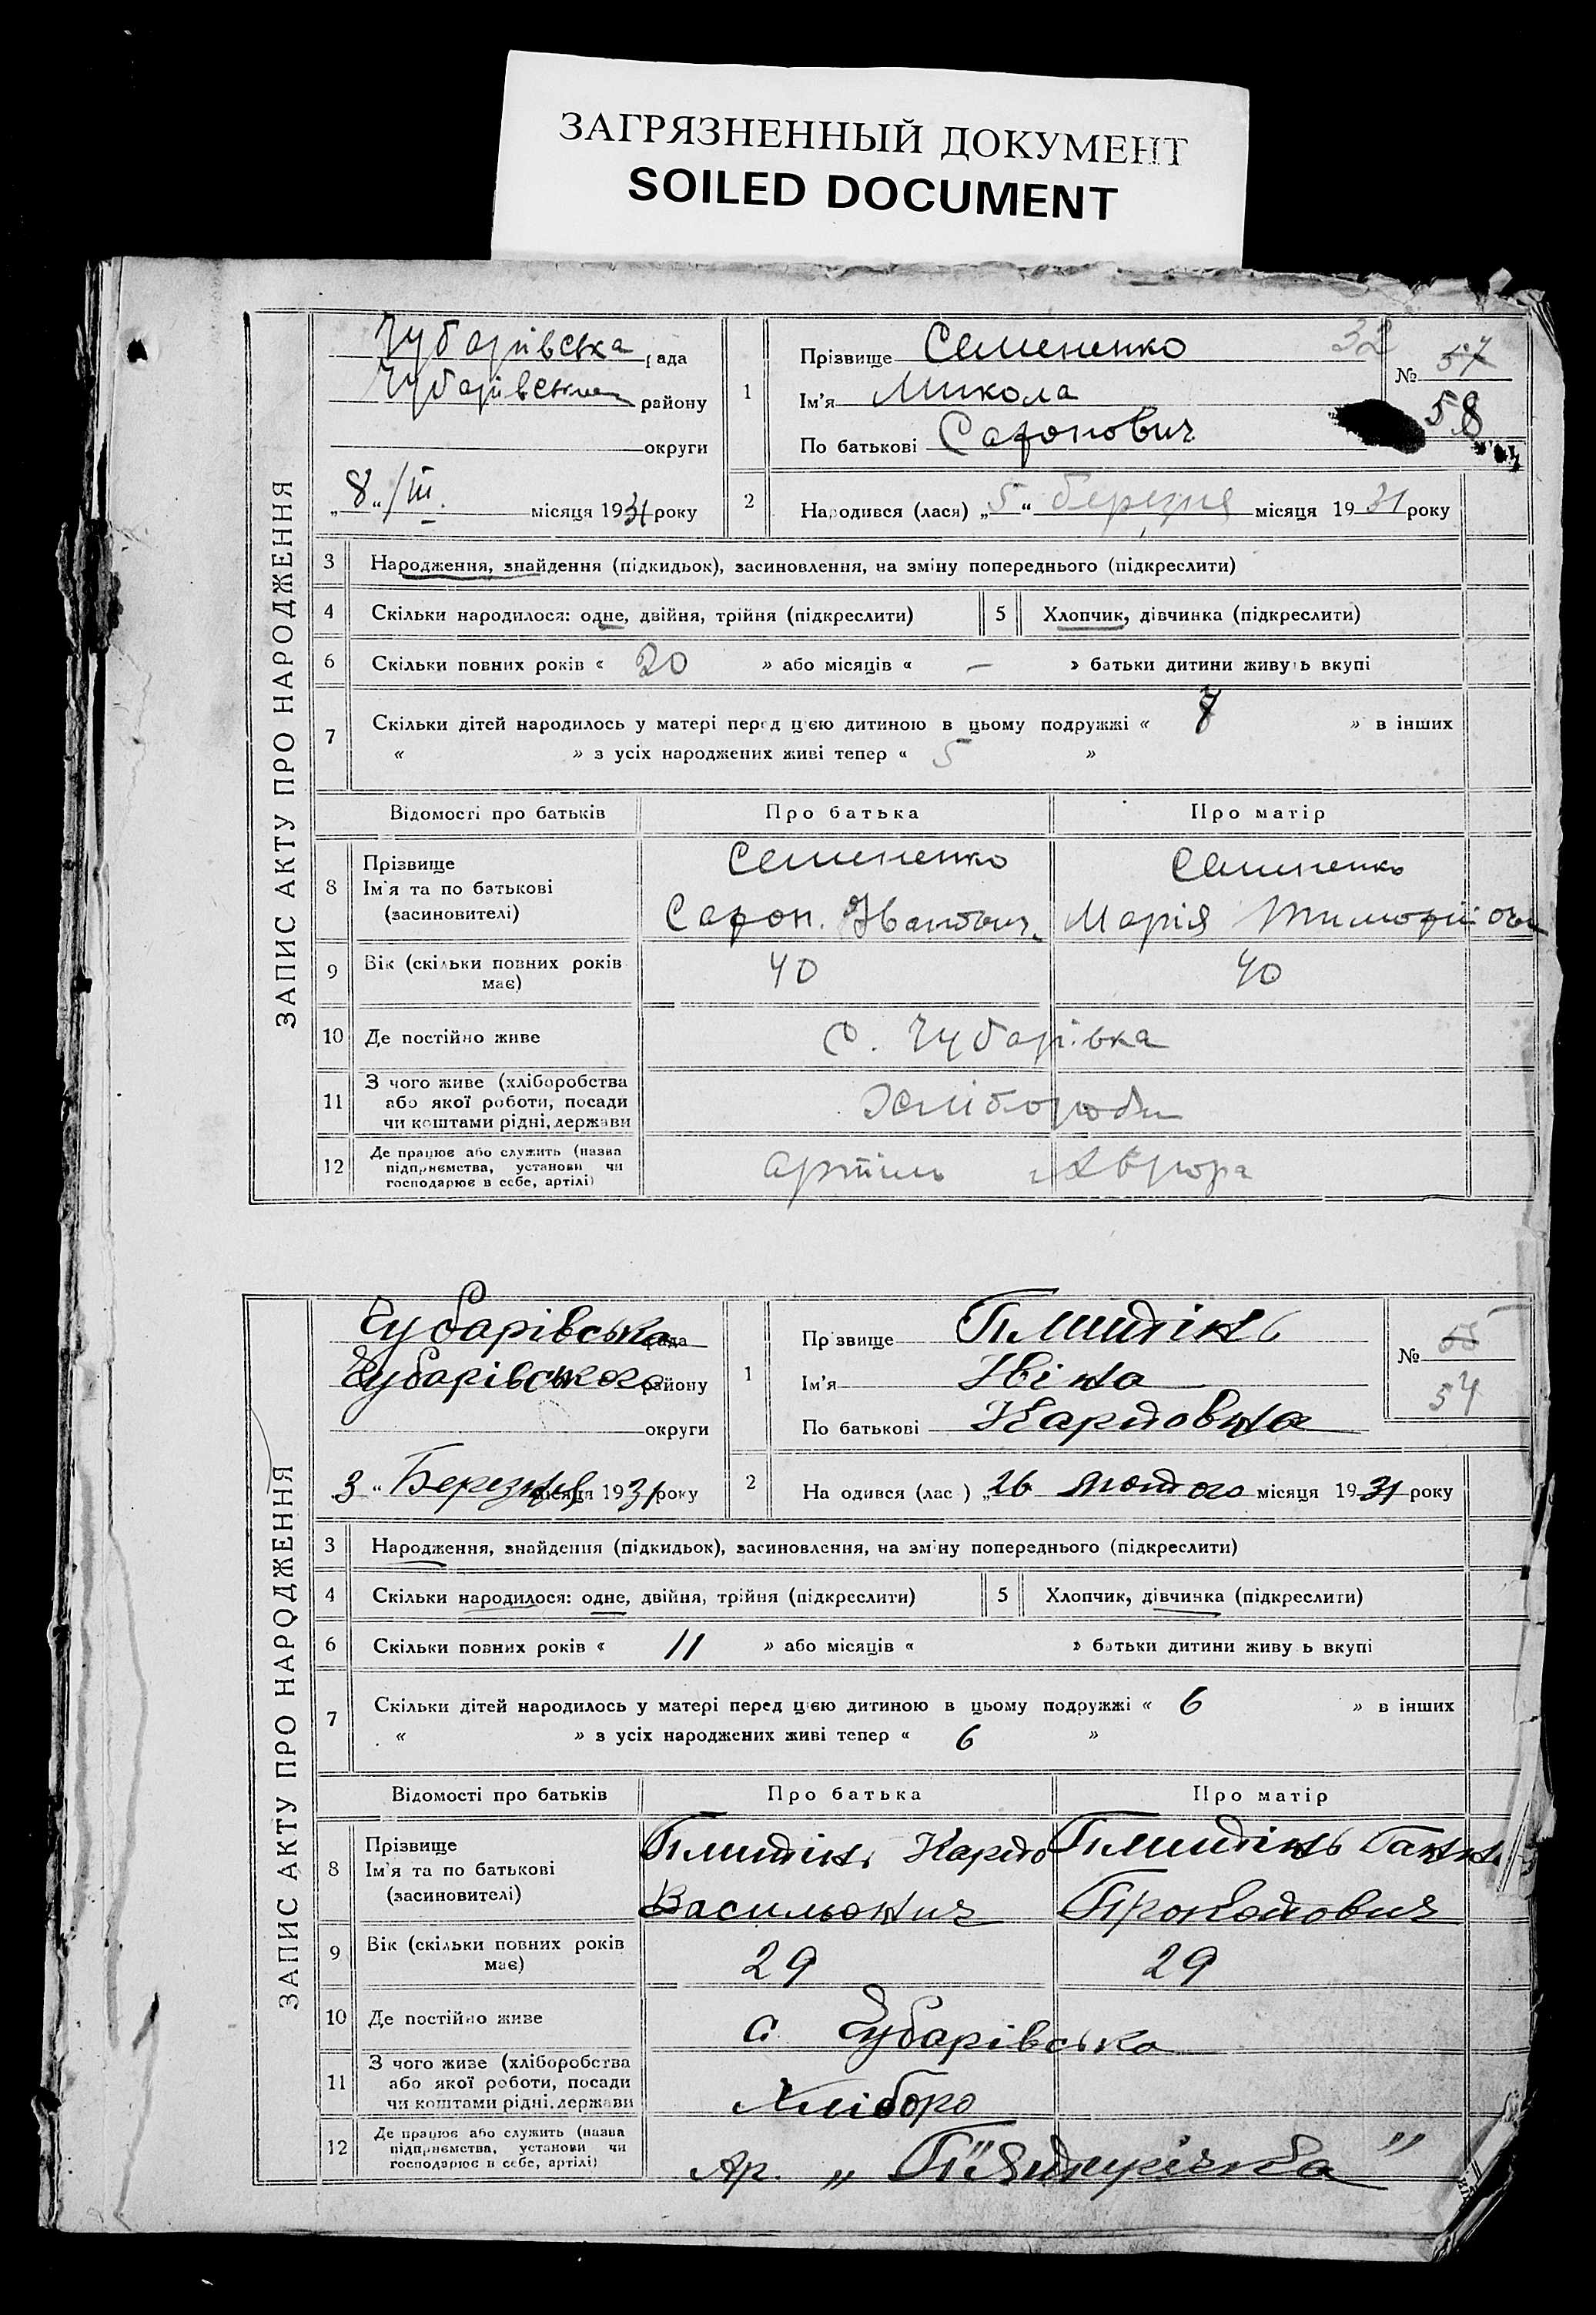 ЗАГРЯЗНЕННЫЙ ДОКУМЕНТ
SOILED DOCUMENT
ЗАПИС АКТУ ПРО НАРОДЖЕННЯ
Чубарівська рада
Чубарівського району
округи
„8“/III. місяця 1931 року
1
Прізвище Семененко
Ім'я Микола
По батькові Сафонович
32
№ 57
58
2
Народився (лася) „5“ березня місяця 1931 року
3 Народження, знайдення (підкидьок), засиновлення, на зміну попереднього (підкреслити)
4 Скільки народилося: одне, двійня, трійня (підкреслити) 5 Хлопчик, дівчинка (підкреслити)
6 Скільки повних років « 20 » або місяців « – » батьки дитини живуть вкупі
7 Скільки дітей народилось у матері перед цією дитиною в цьому подружжі « 7 » в інших
« » з усіх народжених живі тепер « 5 »
Відомості про батьків Про батька Про матір
8 Прізвище
Ім'я та по батькові
(засиновителі)
Семененко
Сафон. Іванович
Семененко
Марія Тимофіїовн
9 Вік (скільки повних років
має)
40 40
10 Де постійно живе
с. Чубарівка
11 З чого живе (хліборобства
або якої роботи, посади
чи коштами рідні, держави
Хлібороби
12 Де працює або служить (назва
підприємства, установи чи
господарює в себе, артілі)
артіль Аврора
ЗАПИС АКТУ ПРО НАРОДЖЕННЯ
Чубарівська рада
Чубарівського району
округи
3 “ Березня місяця 1931 року
1
Прізвище
Ім'я Ніна
По батькові Карповна
№ 55
54
2
Народився (лася) „26 лютого місяця 1931 року
3 Народження, знайдення (підкидьок), засиновлення, на зміну попереднього (підкреслити)
4 Скільки народилося: одне, двійня, трійня (підкреслити) 5 Хлопчик, дівчинка (підкреслити)
6 Скільки повних років « 11 » або місяців « » батьки дитини живуть вкупі
7 Скільки дітей народилось у матері перед цією дитиною в цьому подружжі « 6 » в інших
« » з усіх народжених живі тепер « 6 »
Відомості про батьків Про батька Про матір
8 Прізвище
Ім'я та по батькові
(засиновителі)
Карпо
Васильович
Ганна
Прокопович
9 Вік (скільки повних років
має)
29 29
10 Де постійно живе
с Чубарівська
11 З чого живе (хліборобства
або якої роботи, посади
чи коштами рідні, держави
Хліборо
12 Де працює або служить (назва
підприємства, установи чи
господарює в себе, артілі)
Ар. „ П'ятирічка ”